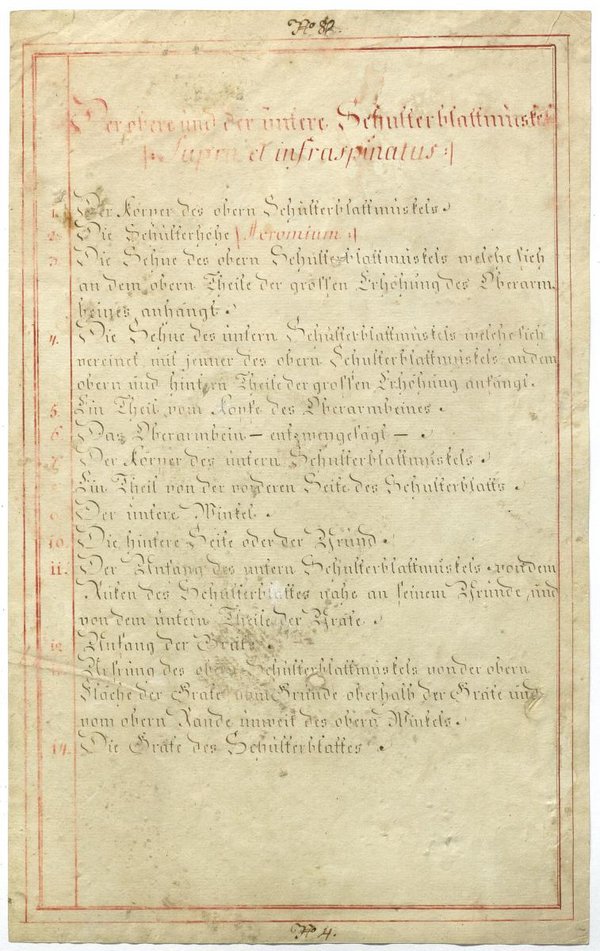 No 82.
Der obere und der untere Schulterblattmuskel
|: Supra et infraspinatus :|
1. Der Körper des obern Schulterblattmuskels.
2. Die Schulterhöhe |: Acromium :|
3. Die Sehne des obern Schulterblattmuskels welche sich
an dem obern Theile der grossen Erhöhung des Oberarm,
beines anhängt.
4. Die Sehne des untern Schulterblattmuskels welche sich
vereinet mit jenner des obern Schulterblattmuskels an dem
obern und hintern Theile der grossen Erhöhung anhängt.
5. Ein Theil vom Kopfe des Oberarmbeines.
6. Das Oberarmbein – entzweygesägt –.
7. Der Körper des untern Schulterblattmuskels.
Ein Theil von der vorderen Seite des Schulterblatts.
9. Der untere Winkel.
10. Die hintere Seite oder der Grund.
11. Der Anfang des untern Schulterblattmuskels von dem
Rüken des Schulterblattes nahe an seinem Grunde, und
von dem untern Theile der Gräte.
12. Anfang der Gräte.
Ursprung des obern Schulterblattmuskels von der obern
Fläche der Gräte vom Grunde oberhalb der Gräte und
vom obern Rande unweit des obern Winkels.
14. Die Gräte des Schulterblattes.
No 4.